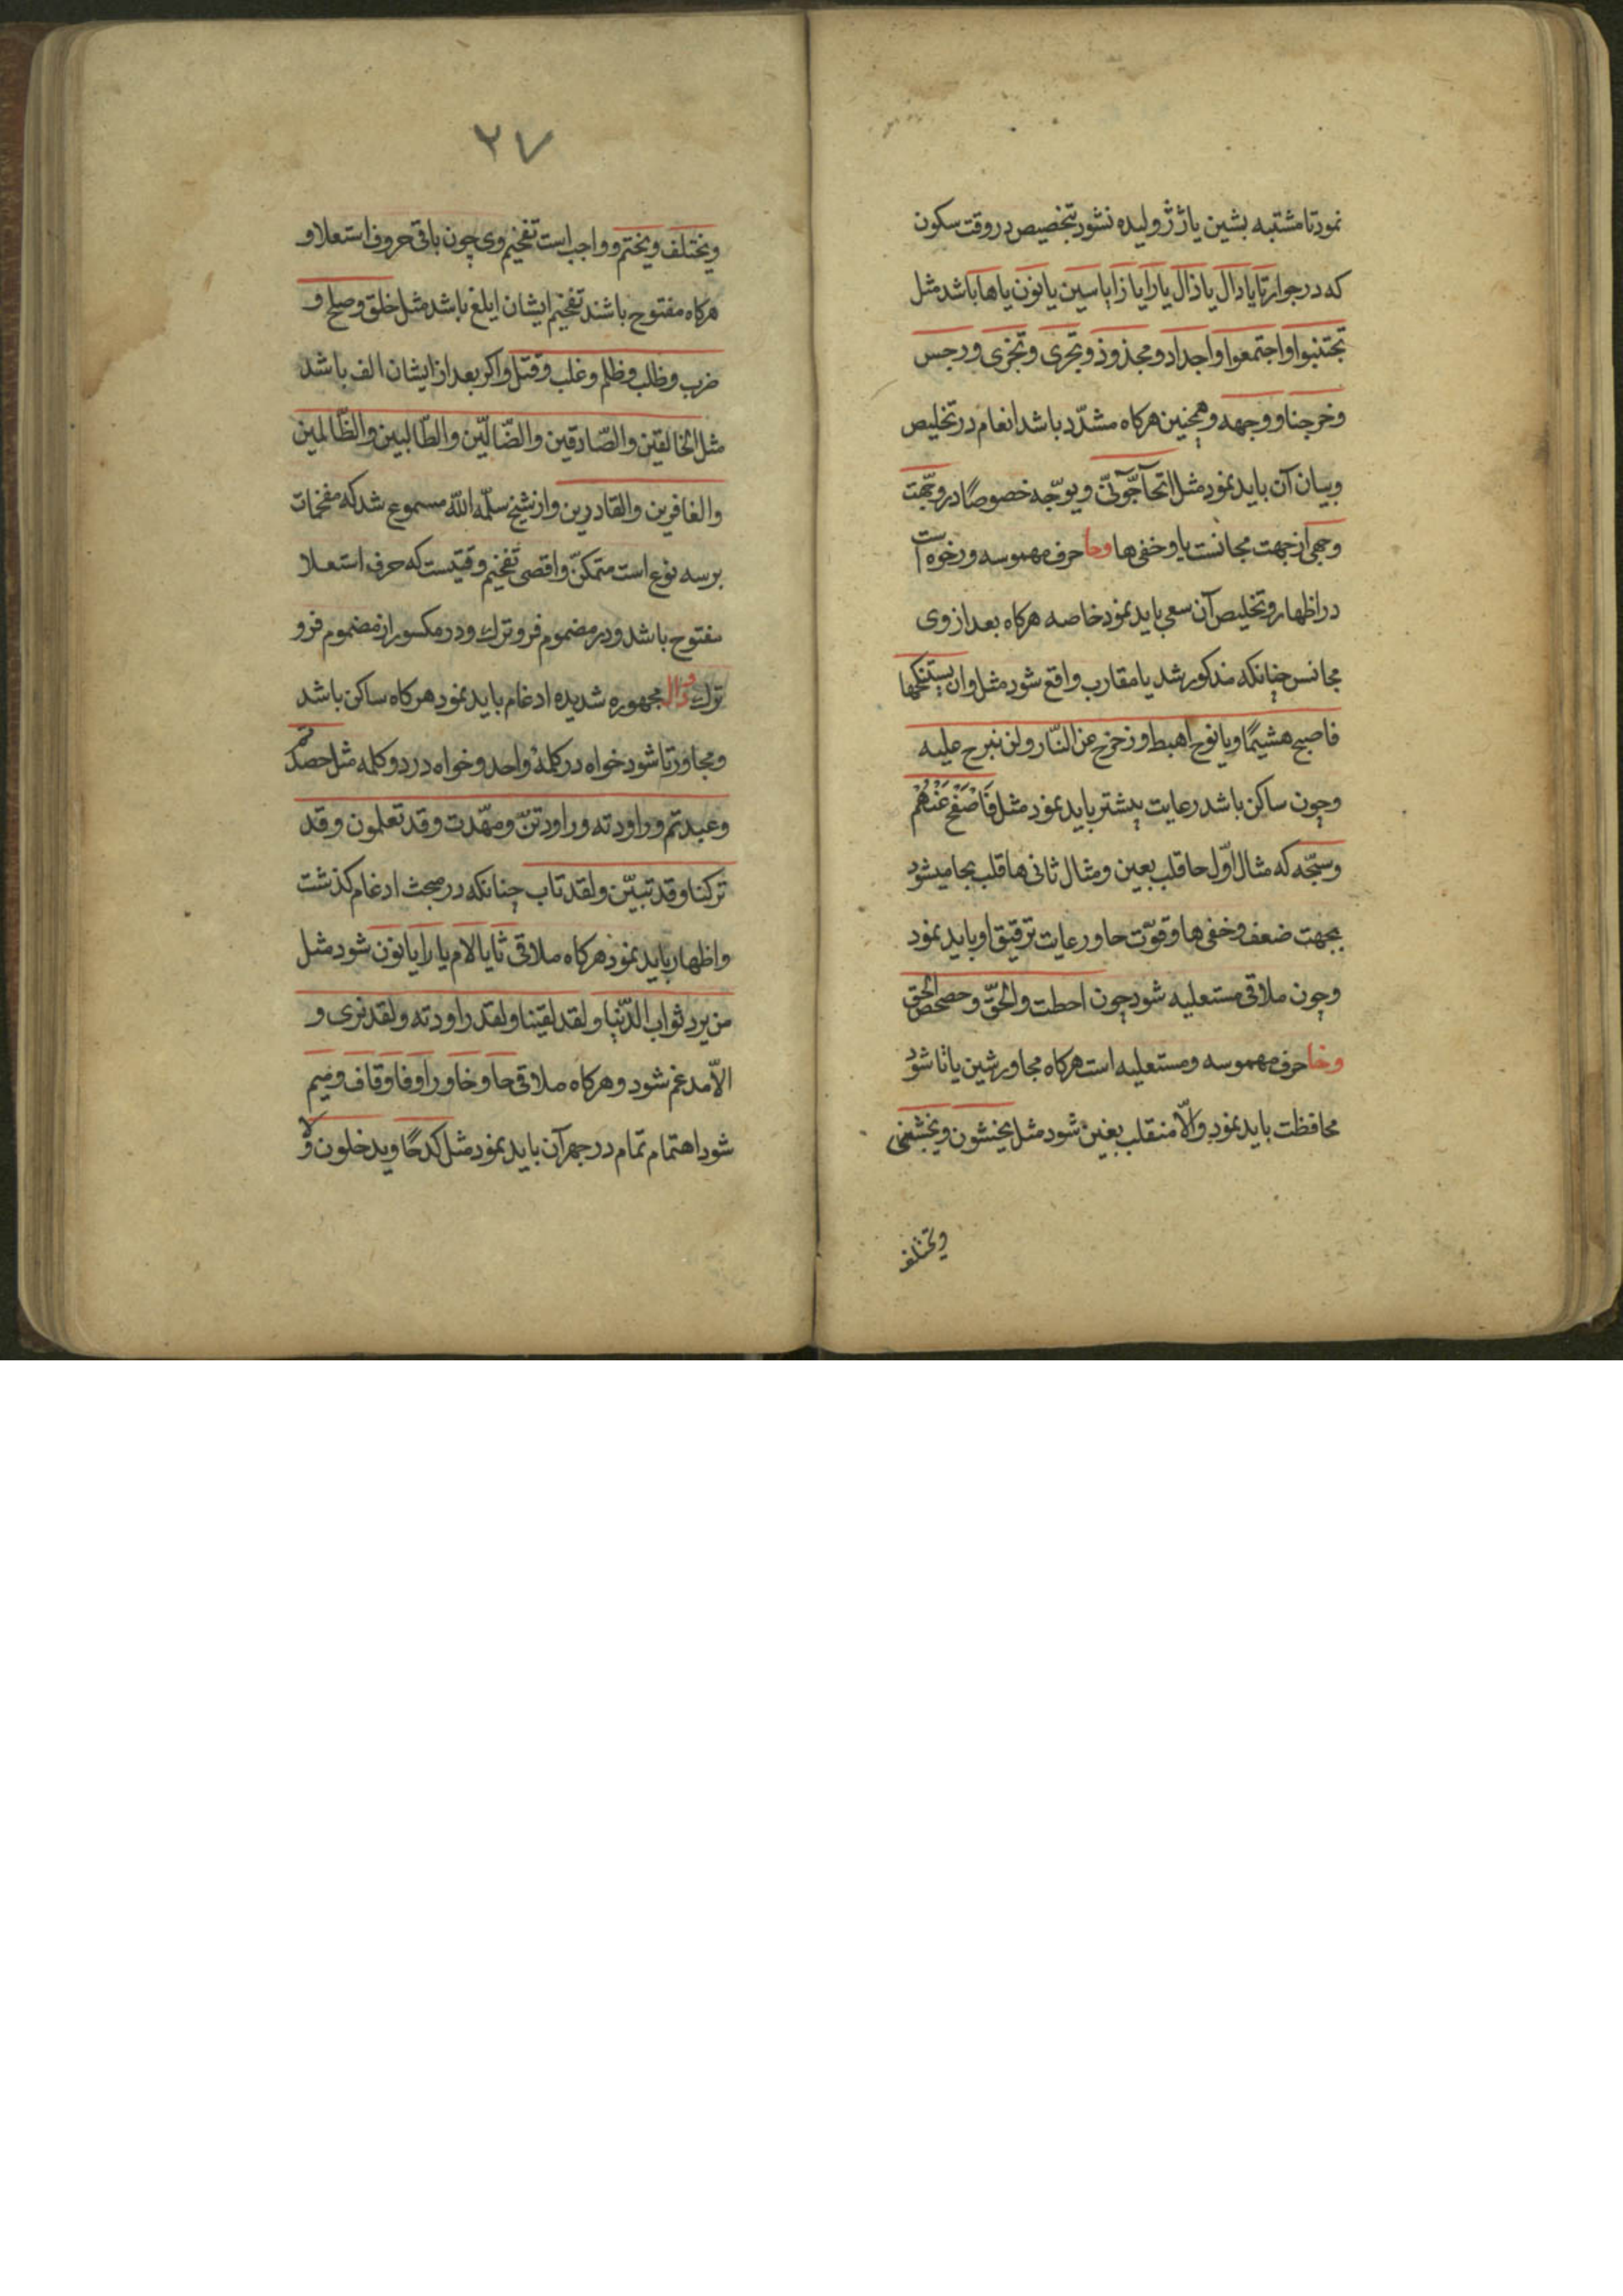 نمود تا مشتبه بشین یا ژ ژولیده نشود بتخصیص در وقت سکون
که در جوار تا یا دال یا ذال یا را یا زا یا سین یا نون یا ها باشد مثل
تجتنبوا واجتمعوا واجداد ومجذوذ وتجری وتجزی ورجس
وخرجنا ووجهه وهمچنین هرکاه مشدّد باشد انعام در تخلیص
وبیان آن باید نمود مثل اتحآجّونّی ویوجّهه خصوصًا در وجّهت
وجهی از جهت مجانست یا وخفی ها وحا حرف مهموسه ورخوه است
در اظهار وتخلیص آن سعی باید نمود خاصه هرکاه بعد از وی
مجانس چنانکه مذکور شد یا مقارب واقع شود مثل وان یستنکحها
فاصبح هشیمًا ویا نوح اهبط وزحزح عن النّار ولن نبرح علیه
وچون ساکن باشد رعایت بیشتر باید نمود مثل فَاصْفَحْ عَنْهُمْ
وسبّحه که مثال اوّل حا قلب بعین ومثال ثانی ها قلب بحا میشود
بجهت ضعف وخفی ها وقوّت حا ورعایت ترقیق او باید نمود
وچون ملاقی مستعلیه شود چون احطت والحقّ وحصحص الحق
وخا حرف مهموسه ومستعلیه است هرکاه مجاور شین یا تا شود
محافظت باید نمود والّا منقلب بغین شود مثل یخشون ویخشی
ویختلف
۲۷
ویختلف ویختم وواجب است تفخیم وی چون باقی حروف استعلا و
هرکاه مفتوح باشند تفخیم ایشان ابلغ باشد مثل خلق وصلح و
ضرب وطلب وظلم وغلب وقتل واکر بعد از ایشان الف باشد
مثل الخالقین والصّادقین والضّالّین والطّالبین والظّالمین
والغافرین والقادرین واز شیخ سلّمه اللّه مسموع شد که مفخمات
بر سه نوع است متمکنّ واقصی تفخیم وقتیست که حرف استعلا
مفتوح باشد ودر مضموم فروترک ودر مکسور از مضموم فرو
ترک ودال مجهوره شدیده ادغام باید نمود هرکاه ساکن باشد
ومجاور تا شود خواه در کلمهٔ واحد وخواه در دو کلمه مثل حصدتم
وعبدتم وراودته وراودتنّ ومهّدت وقد تعلمون وقد
ترکنا وقد تبیّن ولقد تاب چنانکه در مبحث ادغام کذشت
واظهار باید نمود هرکاه ملاقی ثا یا لام یا را یا نون شود مثل
من یرد ثواب الدّنیا ولقد لقینا ولقد راودته ولقد نری و
الّا مدغم شود وهرکاه ملاقی حا وخا ورا وفا وقاف ومیم
شود اهتمام تمام در جهر آن باید نمود مثل کدحًا ویدخلون ولا